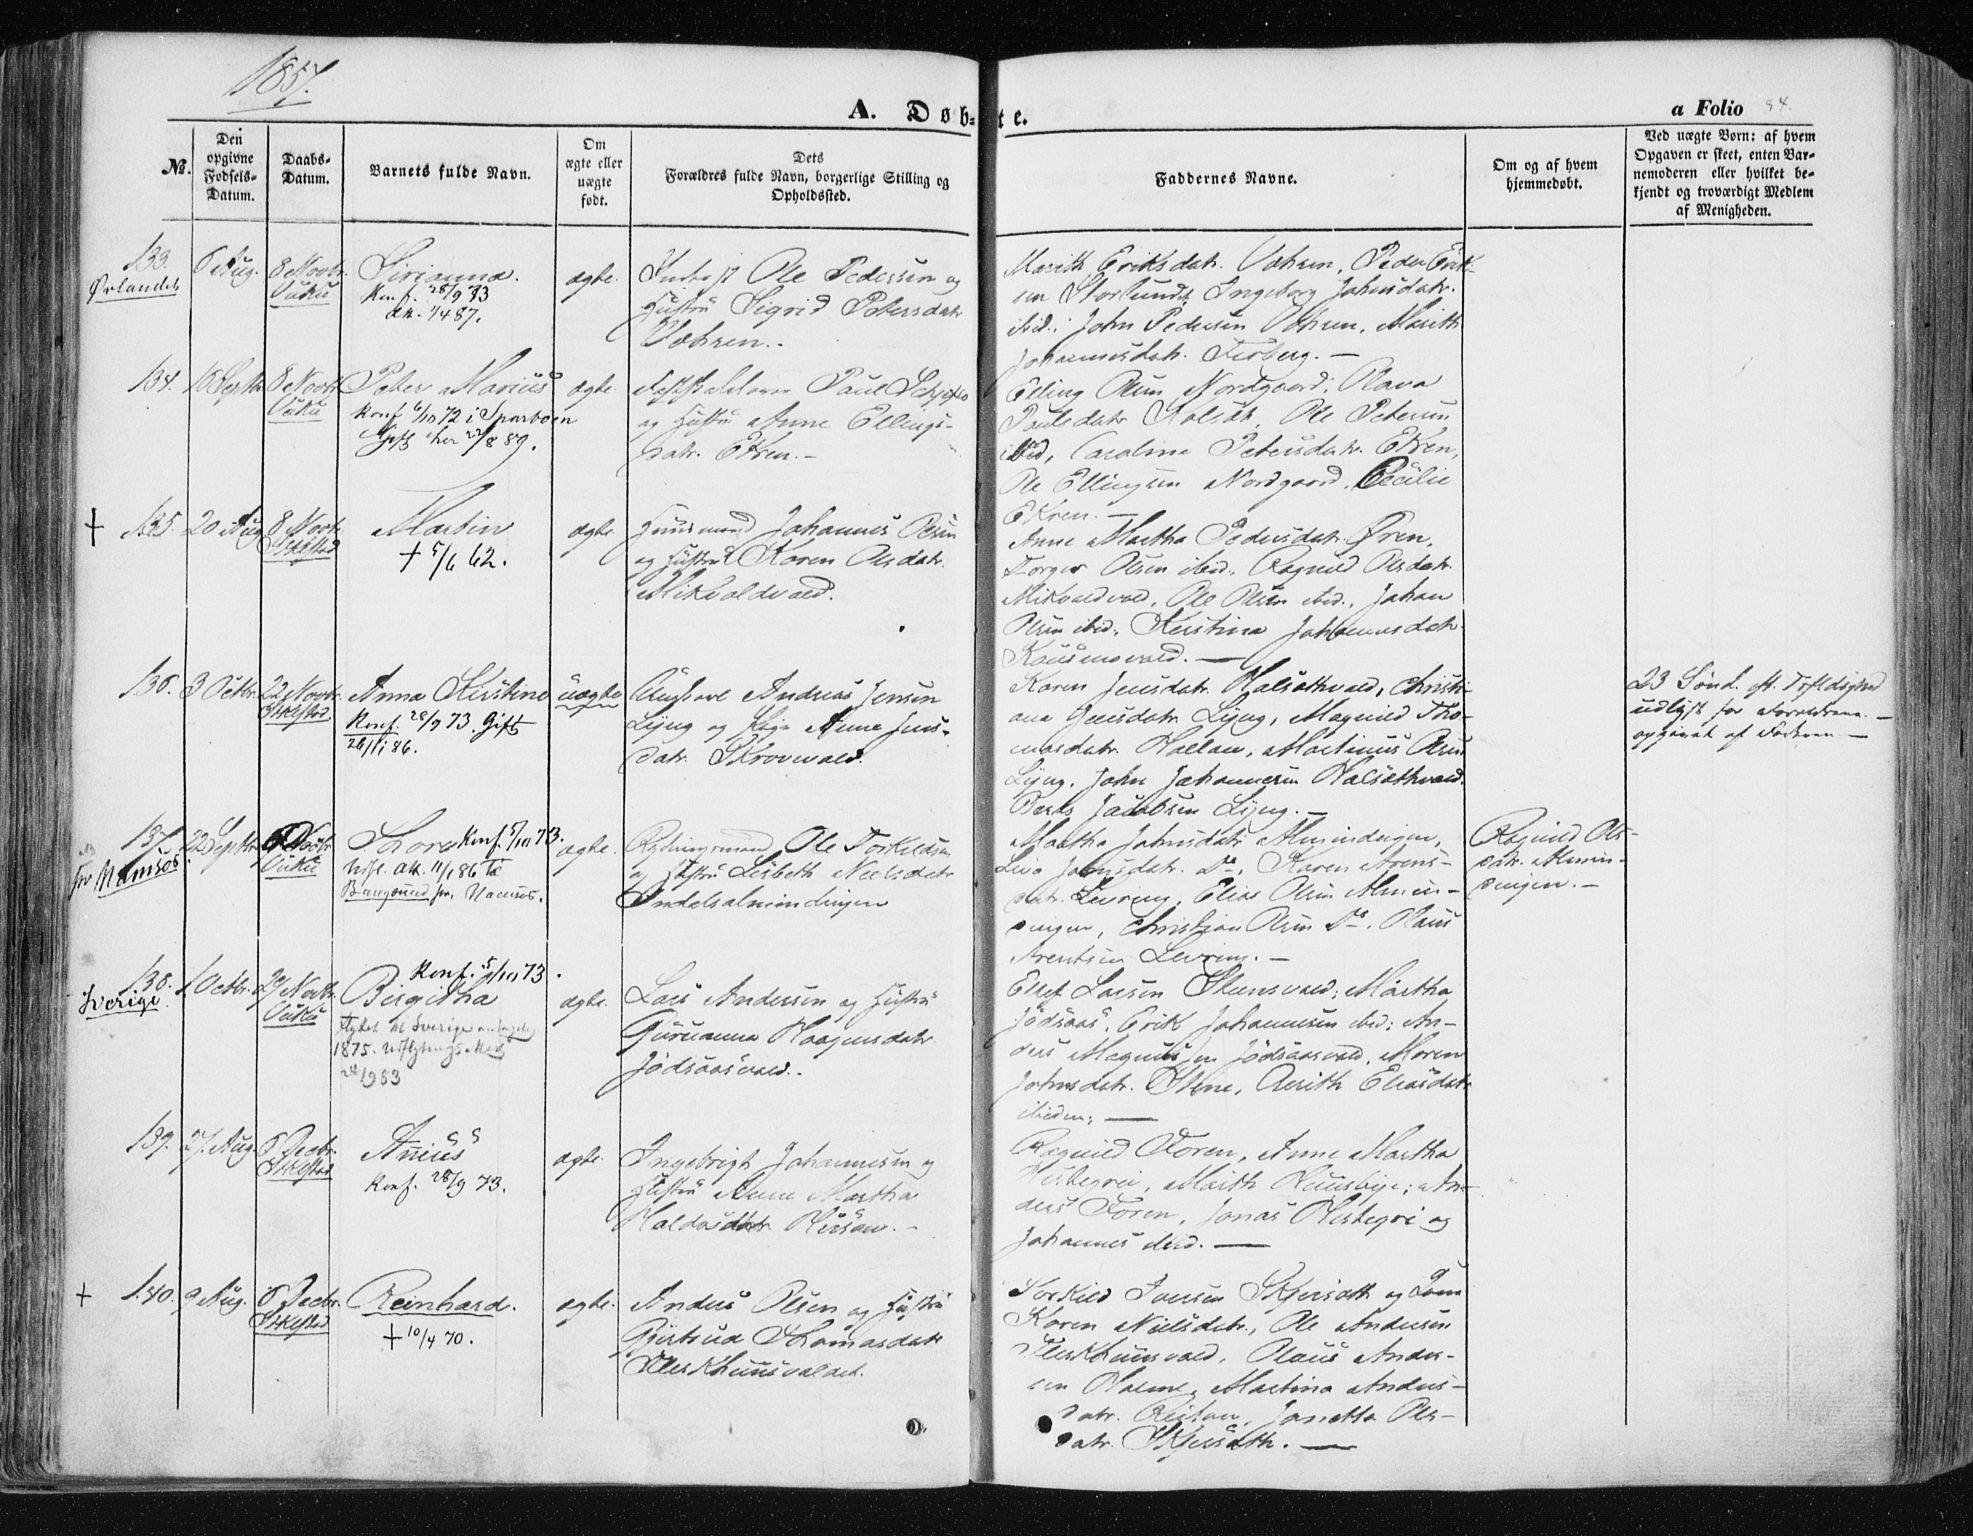 1857.
A. Døb-
te.
a Folio 84.
No.
Den opgivne Fødsels-Datum.
Daabs-Datum.
Barnets fulde Navn.
Om ægte eller uægte født.
Dets Forældres fulde Navn, borgerlige Stilling og Opholdssted.
Faddernes Navne.
Om og af hvem hjemmedøbt.
Ved uægte Børn: af hvem Opgaven er skeet, enten Barnemoderen eller hvilket bekjendt og troværdigt Medlem af Menigheden.
133.
Ørlandet
6 Aug.
8 Novbr.
Vuku
Sirianna.
Konf. 28/9 73
ægte.
Ole Pedersen og
Hustru Sigrid Petersdatr
Vohren.
Marith Eriksdatr. Vohren, Peder Erik-
sen Storlunds, Ingeborg Johnsdatr.
ibid; John Pedersen Vohren, Marith
Johannesdatr. Ferberg. —
134.
16 Septbr
8 Novbr
Vuku
Peter Marius
Konf. 6/10 72 i Sparboen
Gift her 22/8 89.
ægte.
Paul
og Hustru Anne Ellings-
datr. Ekren. —
Elling Olsen Nordgaard, Olava
Paulsdatr. Ole Petersen
ibid, Caroline Petersdatr. Ekren,
Ole Ellingsen Nordgaard, Cecilie
Ekren. —
+ 135.
20 Aug
8 Novbr.
Stiklestad
Martin
+ 5/6 62.
ægte.
Huusmand Johannes Olsen
og Hustru Karen Olsdatr.
Mikvoldvald.
Anne Martha Pedersdatr. Øren,
Torger Olsen ibid., Ragnild Olsdatr.
Mikvoldvald, Ole Olsen ibid., Johan
Olsen ibid, Kerstina Johannesdatr.
136.
3 Octbr.
22 Novbr.
Stiklestad
Anna Kirstine
Konf. 28/9 73. Gift
26/11 86.
uægte
Ungkarl Andreas Jensen
Ljng og Pige Anne Jens-
datr. Skrovevald.
Karen Jensdatr. Halsethvald, Christi-
ana Jensdatr. Ljng, Magnild Tho-
masdatr. Hallan, Martinus Olsen
Ljng, John Johannesen Halsethvald,
Jacobsen Ljng. —
23 Sønd. eft.
udlyst for Forældrene. —
opgivet af Faderen —
137.
Namsos
22 Septbr
Novbr.
Vuku
Thora Konf. 5/10 73.
ægte.
Rydningsmand Ole Torkildsen
og Hustru Lisbeth Nielsdatr
Indalsalmindingen
Martha Johnsdatr Almindingen,
Johnsdatr. Do, Karen Arents-
datr. Levring, Elias Olsen Almin-
dingen, Christian Olsen Do, Olaus
Arentsen Levring. —
Ragnild Ols-
datr. Almin-
dingen. —
138.
Sverige
1 Octbr.
29 Novbr.
Vuku
Konf. 5/10 73.
Birgitha
flyttet til Sverige
1875.
ægte.
Lars Andersen og Hustru
Guruanna Haagensdatr.
Jødsaasvald.
Ellef Larsen Steensvald, Martha
Jødsaas, Erik Johannesen ibid; An-
ders Magnussen Jødsaasvald, Maren
Johnsdatr. Stene, Marith Eliasdatr
ibidem; —
139.
27 Aug.
6 Decbr.
Stiklestad
Anius
Konf. 28/9 73.
ægte.
Ingebrigt Johannesen og
Hustru Anne Martha
Haldosdatr.
Ragnild Foren, Anne Martha
Marith Huusbye; An-
ders Foren, Jonas og
Johannes ibid. —
+ 140.
9 Aug.
6 Decbr.
Stiklestad
Reinhard.
+ 10/4 70.
ægte.
Anders Olsen og Hustru
Gjertrud Thomasdatr
Fleskhuusvaldet.
Torkild Iversen Skjersæth og
Karen Nielsdatr., Ole Andersen
Fleskhuusvald, Olaus Ander-
sen Holme, Martina Anders-
datr. Reitan, Jonetta Ols-
datr. Skjersæth. —